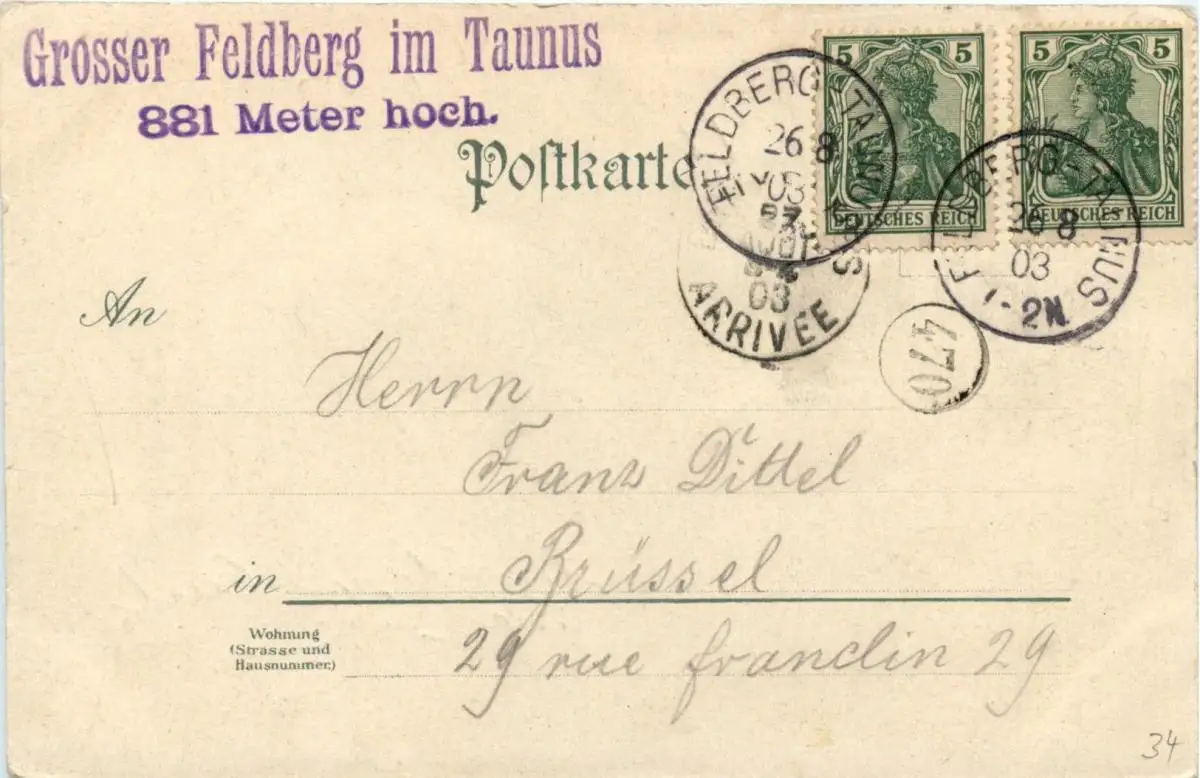 Grosser Feldberg im Taunus
881 Meter hoch.
Postkarte
5 5
DEUTSCHES REICH
5 5
DEUTSCHES REICH
FELDBERG-TAUNUS
26 8
03
FELDBERG-TAUNUS
26 8
03
1-2N.
03
ARRIVEE
470
An
Herrn
Franz Dittel
in Brüssel
Wohnung
(Strasse und
Hausnummer.)
29 rue franclin 29
34